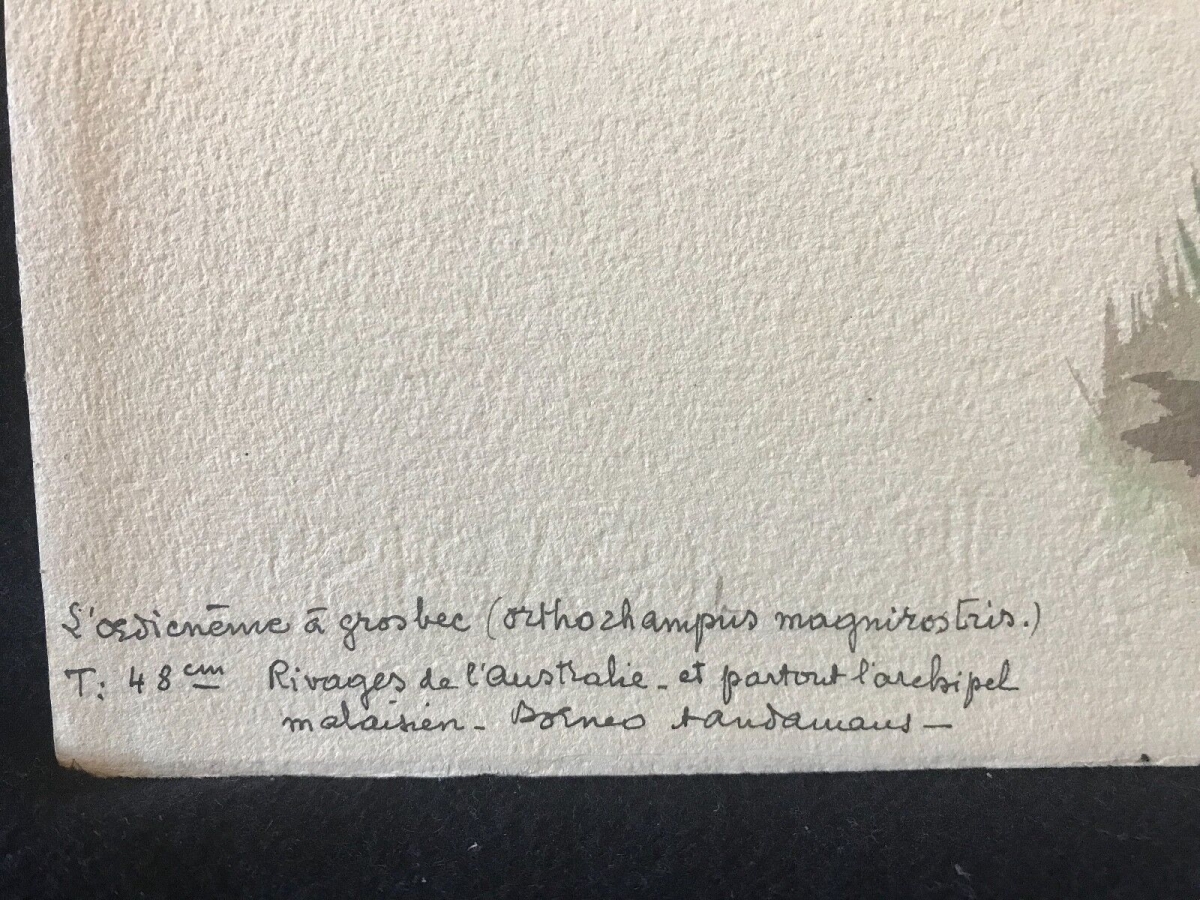 L'œdicnēme ā gros bec (orthorhampus magnirostris.)
T: 48 cm Rivages de l'Australie - et partout l'archipel
malaisien - Borneo + andamans -